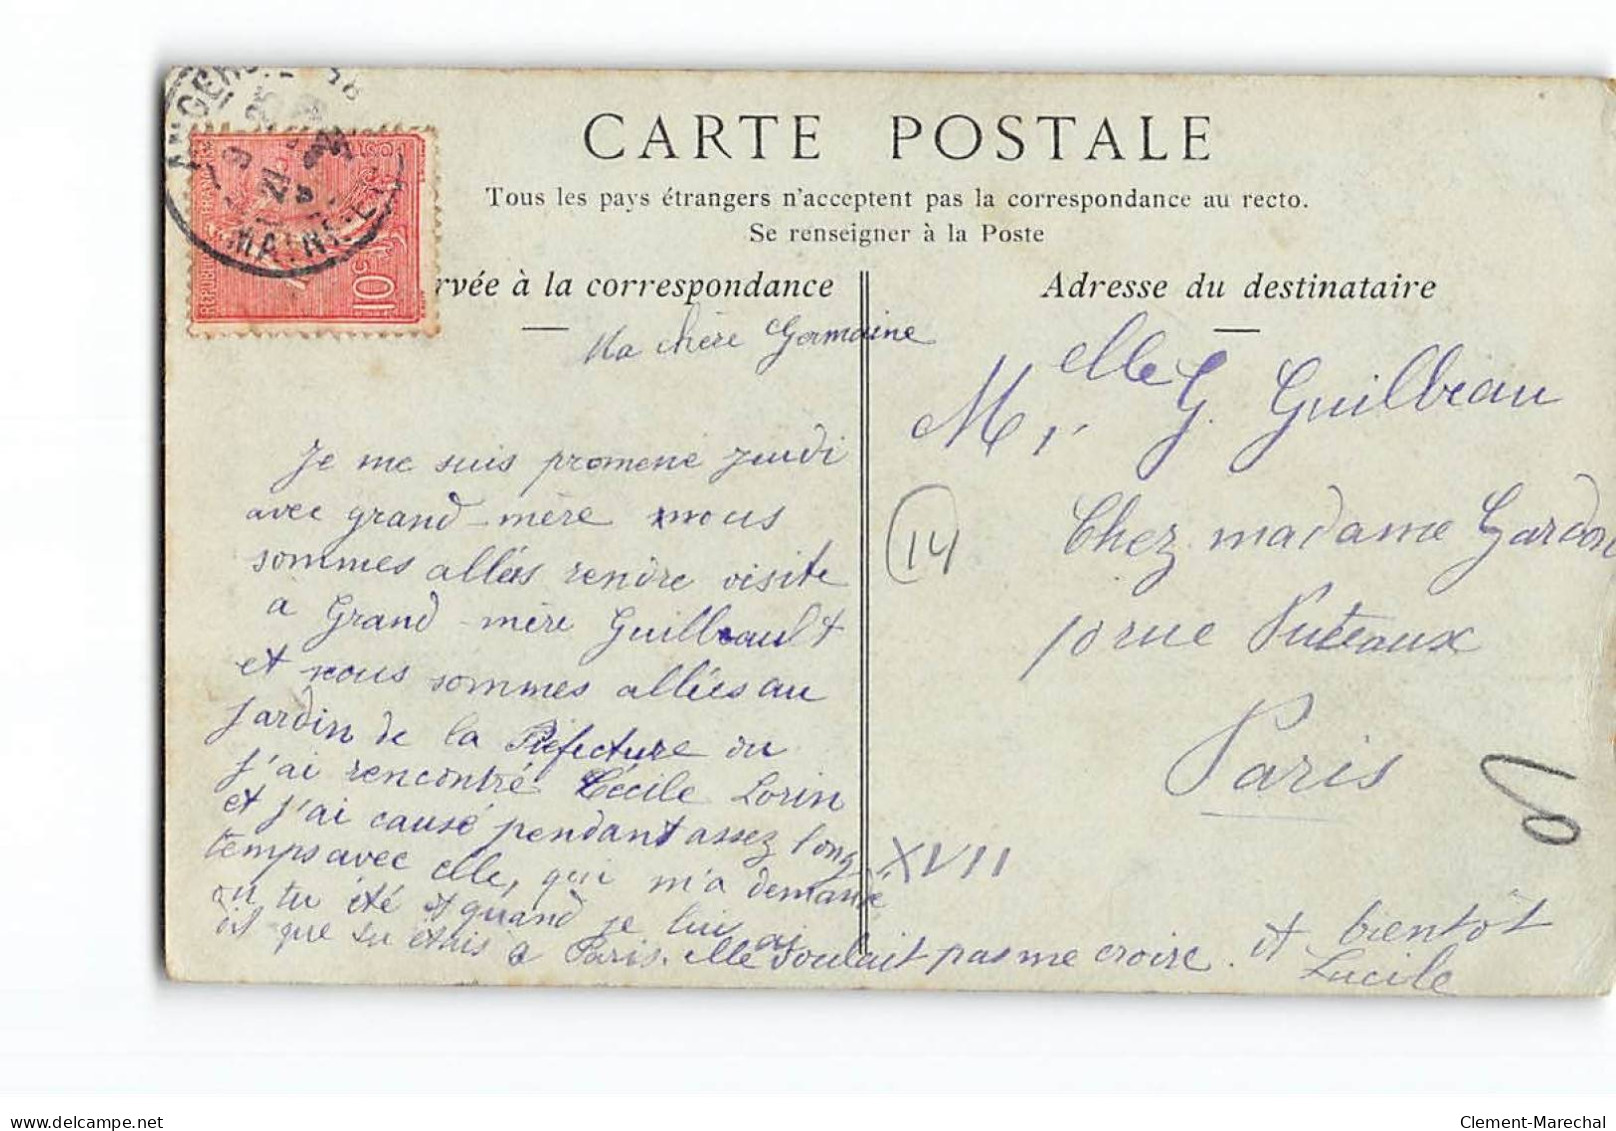 CARTE POSTALE
Tous les pays étrangers n'acceptent pas la correspondance au recto.
Se renseigner à la Poste
rvée à la correspondance
Ma chère Germaine
Je me suis promené jeudi
avec grand-mère nous
sommes allées rendre visite
a Grand-mère Guilbault
et nous sommes allées au
jardin de la Préfecture ou
j'ai rencontré Cécile Lorin
et j'ai causé pendant assez long
temps avec elle, qui m'a demandé
ou tu été et quand je lui ai
dit que tu étais à Paris. elle voulait pas me croire. A bientôt
Lucile
Adresse du destinataire
Melle G. Guilbeau
Chez madame Gardon
10 rue Puteaux
Paris
XVII
14
ANGERS
MAINE
10c
Clement-Marechal